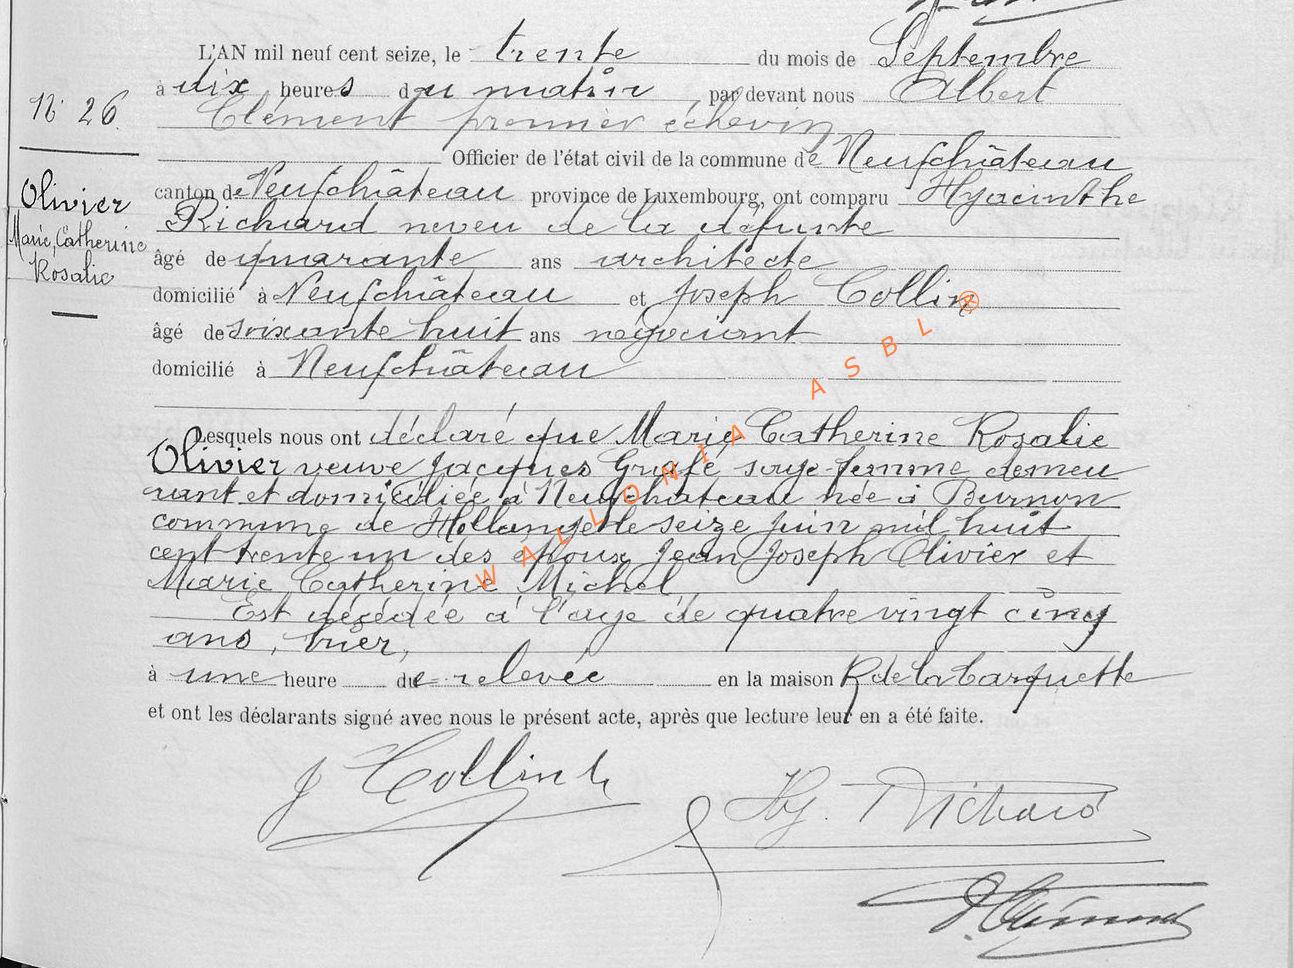 L'AN mil neuf cent seize, le trente du mois de Septembre
à dix heures du matin, par devant nous Albert
Clément premier échevin
Officier de l'état civil de la commune de Neufchâteau
canton de Neufchâteau province de Luxembourg, ont comparu Hyacinthe
Richard neveu de la défunte
âgé de quarante ans architecte
domicilié à Neufchâteau et Joseph Collin
âgé de soixante huit ans négociant
domicilié à Neufchâteau
N° 26
Olivier
Marie, Catherine
Rosalie
Lesquels nous ont déclaré que Marie Catherine Rosalie
Olivier veuve Jacques Grafé sage-femme demeu
rant et domiciliée à Neufchateau née à Burnon
commune de Hollange le seize juin mil huit
cent trente un des époux Jean Joseph Olivier et
Marie Catherine Michel
Est décédée à l'age de quatre vingt cinq
ans, hier,
à une heure de relevée en la maison R de la Barquette
et ont les déclarants signé avec nous le présent acte, après que lecture leur en a été faite.
J Collin
Hy. Richard
Clément
WALLONIA ASBL ®